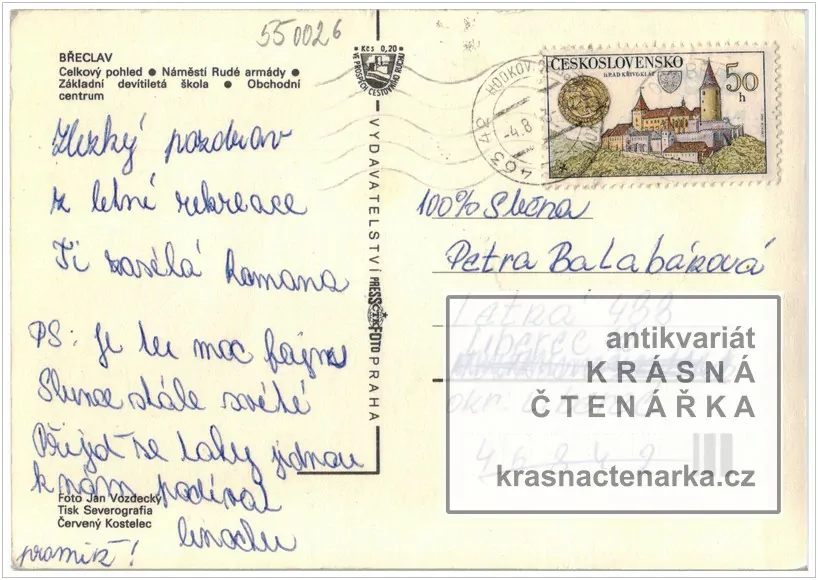 550026
BŘECLAV
Celkový pohled ● Náměstí Rudé armády ●
Základní devítiletá škola ● Obchodní
centrum
Kčs 0,20
VE PROSPĚCH CESTOVNÍHO RUCHU
463 42 HODKOV
-4.8
ČESKOSLOVENSKO
HRAD KŘIVOKLÁT
50
h
Hezký pozdrav
z letní rekreace
Ti zasílá Romana
PS: je tu moc fajn
Slunce stále svítí
Přijď se taky jednou
k nám podívat
promiň!
Foto Jan Vozdecký
Tisk Severografia
Červený Kostelec
VYDAVATELSTVÍ PRESSFOTO PRAHA
100% Slečna
Petra Balabánová
Letná 488
Liberec
okr.
46342
antikvariát
KRÁSNÁ
ČTENÁŘKA
krasnactenarka.cz